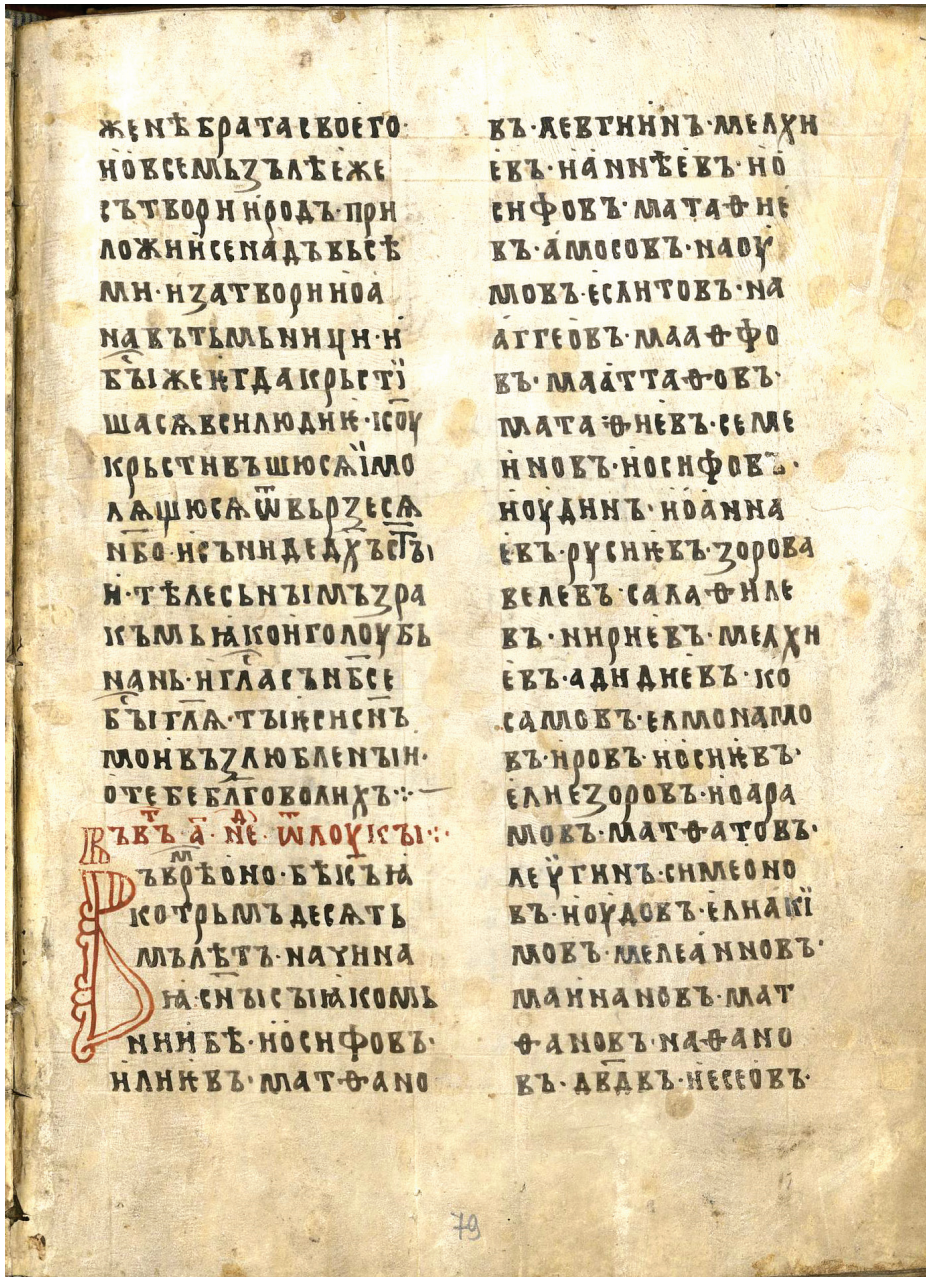 женѣ брата своего·
но всемь зълѣ еже
сътвори ирод·при
ложи и се надъ вьсѣ
ми·и затвори ноа
на въ тьмьници·и
бꙑ же ѥгда крьсті
ша сѧ вси людиѥ·ісоу
крьстивъшю сѧ і мо
лѧщю сѧ ѿвьрзе сѧ
нб҃о·и съниде дх҃ъ ст҃ꙑ
и·тѣлесьнꙑмъ зра
къмь ꙗко и голоубь
на нь·и гла съ нб҃се
бꙑ гл҃ѧ·тꙑ ѥси сн҃ъ
мои възлюбленꙑи·
о тебе бл҃говолихъ·:·—
Въ вт҃ъ·а҃·не҃д·ѿ лоукꙑ·:·
Въ врѣ҃м оно·бѣ іс҃ъ ꙗ
ко трьмъ десѧть
мъ лѣтъ·начина
ꙗ·сн҃ъ ісъ ꙗкомь
нии бѣ·иосифовъ·
илиѥвъ·матѳано
въ·левгиинъ·мелхи
евъ·наннѣевъ·ио
сифовъ·матаѳие
въ·амосовъ·наоу
мовъ·еслитовъ·на
аггеовъ·мааѳфо
въ·мааттаѳовъ·
матаѳиевъ·семе
инов·иосифовъ·
иоудинъ·иоанна
евъ·русиѥвъ·зорова
велевъ·салаѳиле
въ·нириевъ·мелхи
евъ·адидиевъ·ко
самовъ·елмонамо
въ·ировъ·иосиѥвъ·
елиезоровъ·иоара
мовъ·матѳатовъ·
леѵгинъ·симеоно
въ·иоудовъ·елиакі
мовъ·мелеанновъ·
маинановъ·мат
ѳановъ·наѳано
въ·дв҃двъ·иесеовъ·
79